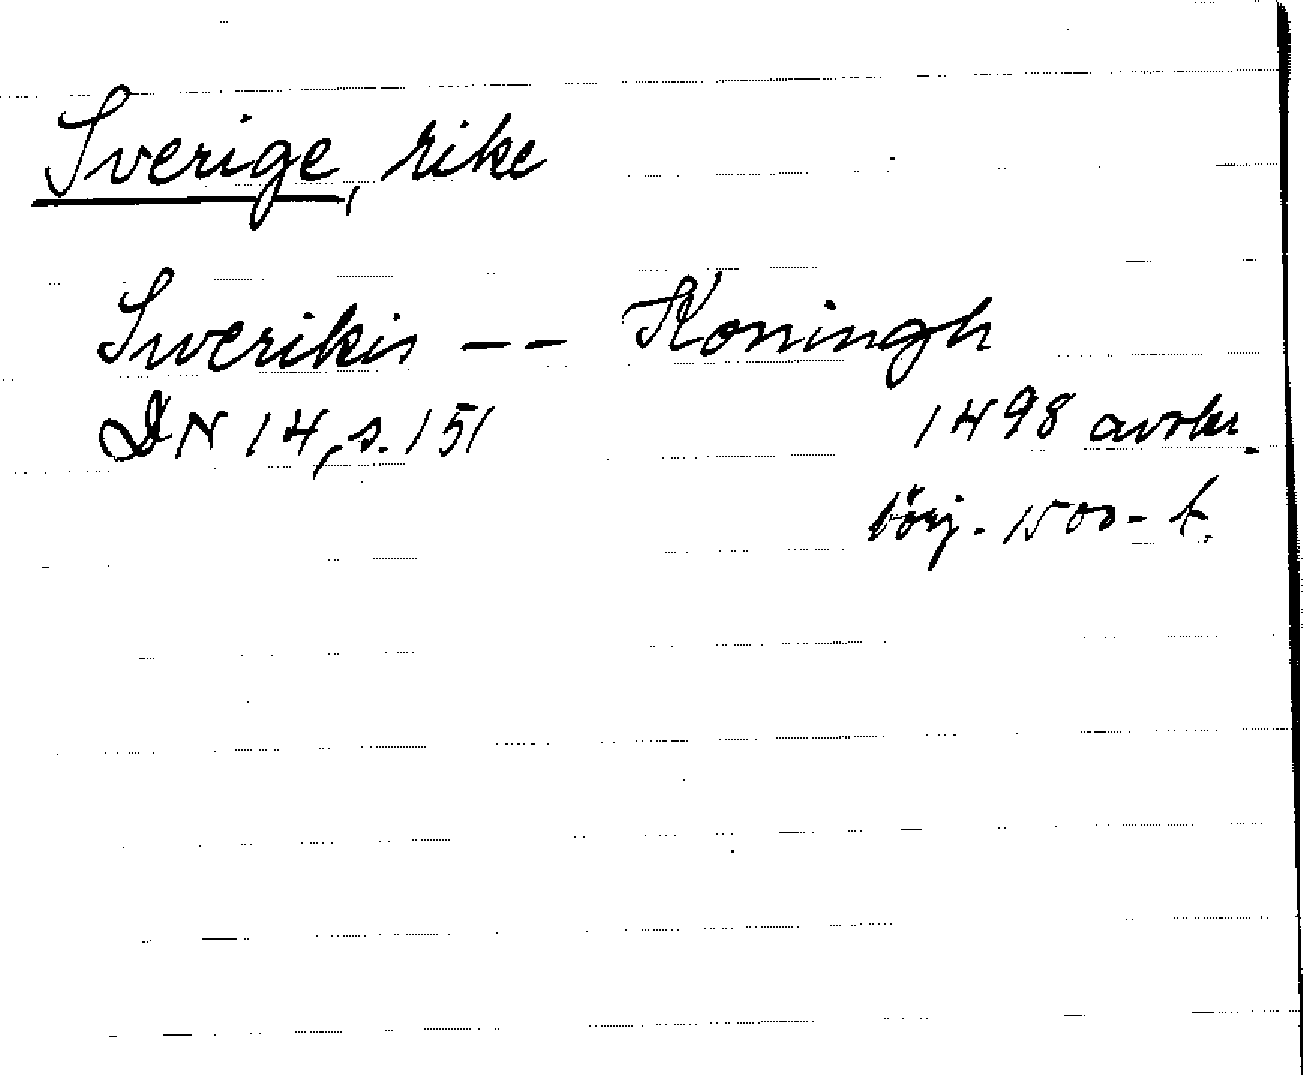 Sverige, rike
Swerikis -- Koningh
DN 14, s. 151 1498 avskr.
börj. 1500-t.